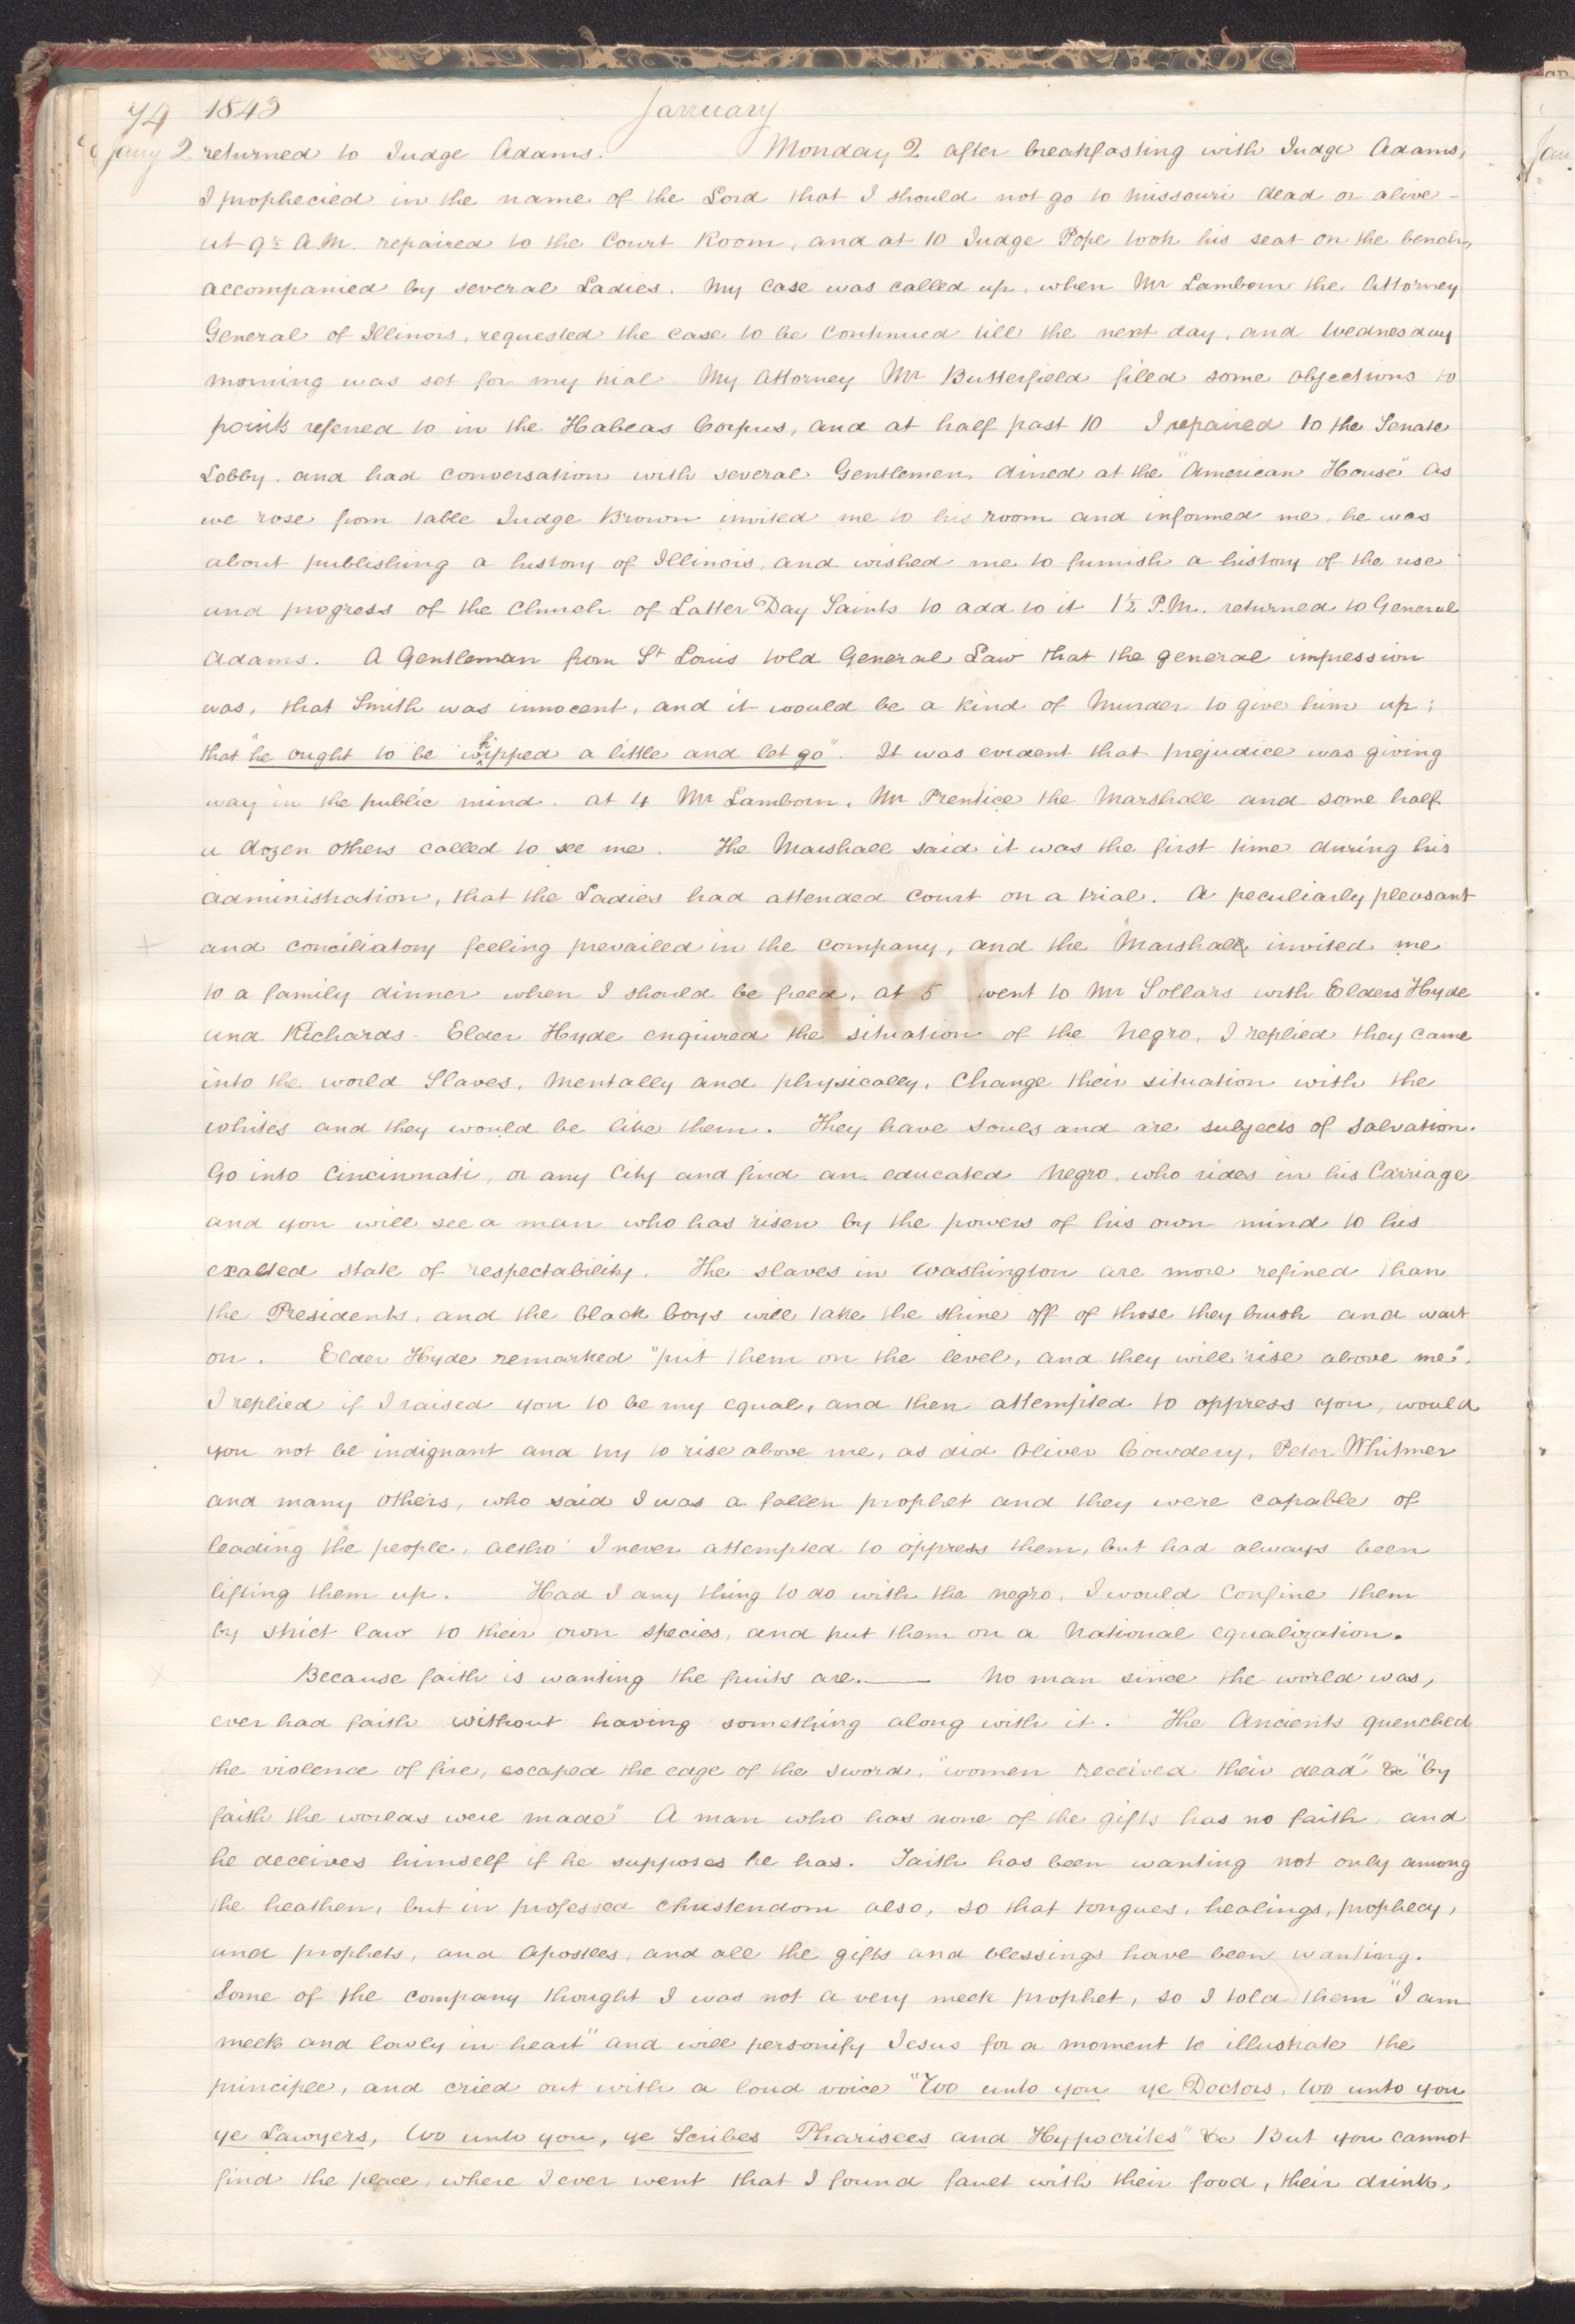 74 1843 January
Jany 2 returned to Judge Adams. Monday 2 after breakfasting with Judge Adams,
I prophecied in the name of the Lord that I should not go to Missouri dead or alive -
at 9½ A.M. repaired to the Court Room, and at 10 Judge Pope took his seat on the bench,
accompanied by several Ladies. My case was called up, when Mr Lamborn the Attorney
General of Illinois, requested the case to be continued till the next day, and Wednesday
morning was set for my trial My Attorney Mr Butterfield filed some objections to
points refered to in the Habeas Corpus, and at half past 10 I repaired to the Senate
Lobby. and had conversation with several Gentlemen. dined at the "American House" As
we rose from table Judge Brown invited me to his room and informed me, he was
about publishing a history of Illinois, and wished me to furnish a history of the rise
and progress of the Church of Latter Day Saints to add to it 1½ P.M. returned to General
Adams. A Gentleman from St Louis told General Law that the general impression
was, that Smith was innocent, and it would be a kind of Murder to give him up;
that "he ought to be whipped a little and let go". It was evident that prejudice was giving
way in the public mind. at 4 Mr Lamborn, Mr Prentice the Marshall and some half
a dozen others called to see me. The Marshall said it was the first time during his
administration, that the Ladies had attended court on a trial. A peculiarly pleasant
and conciliatory feeling prevailed in the company, and the Marshall invited me
to a family dinner when I should be freed, at 5 went to Mr Sollars with Elders Hyde
and Richards - Elder Hyde enquired the situation of the Negro, I replied they came
into the world Slaves, mentally and physically. Change their situation with the
whites and they would be like them. They have souls and are subjects of salvation.
Go into Cincinnati, or any City and find an educated Negro, who rides in his Carriage
and you will see a man who has risen by the powers of his own mind to his
exalted state of respectability. The slaves in Washington are more refined than
the Presidents, and the black boys will take the shine off of those they brush and wait
on. Elder Hyde remarked "put them on the level, and they will rise above me".
I replied if I raised you to be my equal, and then attempted to oppress you, would
you not be indignant and try to rise above me, as did Oliver Cowdery, Peter Whitmer
and many others, who said I was a fallen prophet and they were capable of
leading the people, altho' I never attempted to oppress them, but had always been
lifting them up. Had I any thing to do with the negro, I would confine them
by strict law to their own species, and put them on a national equalization.
Because faith is wanting the fruits are. — No man since the world was,
ever had faith without having something along with it. The Ancients quenched
the violence of fire, escaped the edge of the sword, "women received their dead" &c "by
faith the worlds were made" A man who has none of the gifts has no faith, and
he deceives himself if he supposes he has. Faith has been wanting not only among
the heathen, but in professed christendom also, so that tongues, healings, prophecy,
and prophets, and Apostles, and all the gifts and blessings have been wanting.
Some of the company thought I was not a very meek prophet, so I told them "I am
meek and lowly in heart" and will personify Jesus for a moment to illustrate the
principle, and cried out with a loud voice "Wo unto you ye Doctors, wo unto you
ye Lawyers, wo unto you, ye Scribes Pharisees and Hypocrites" &c But you cannot
find the place, where I ever went that I found fault with their food, their drink,